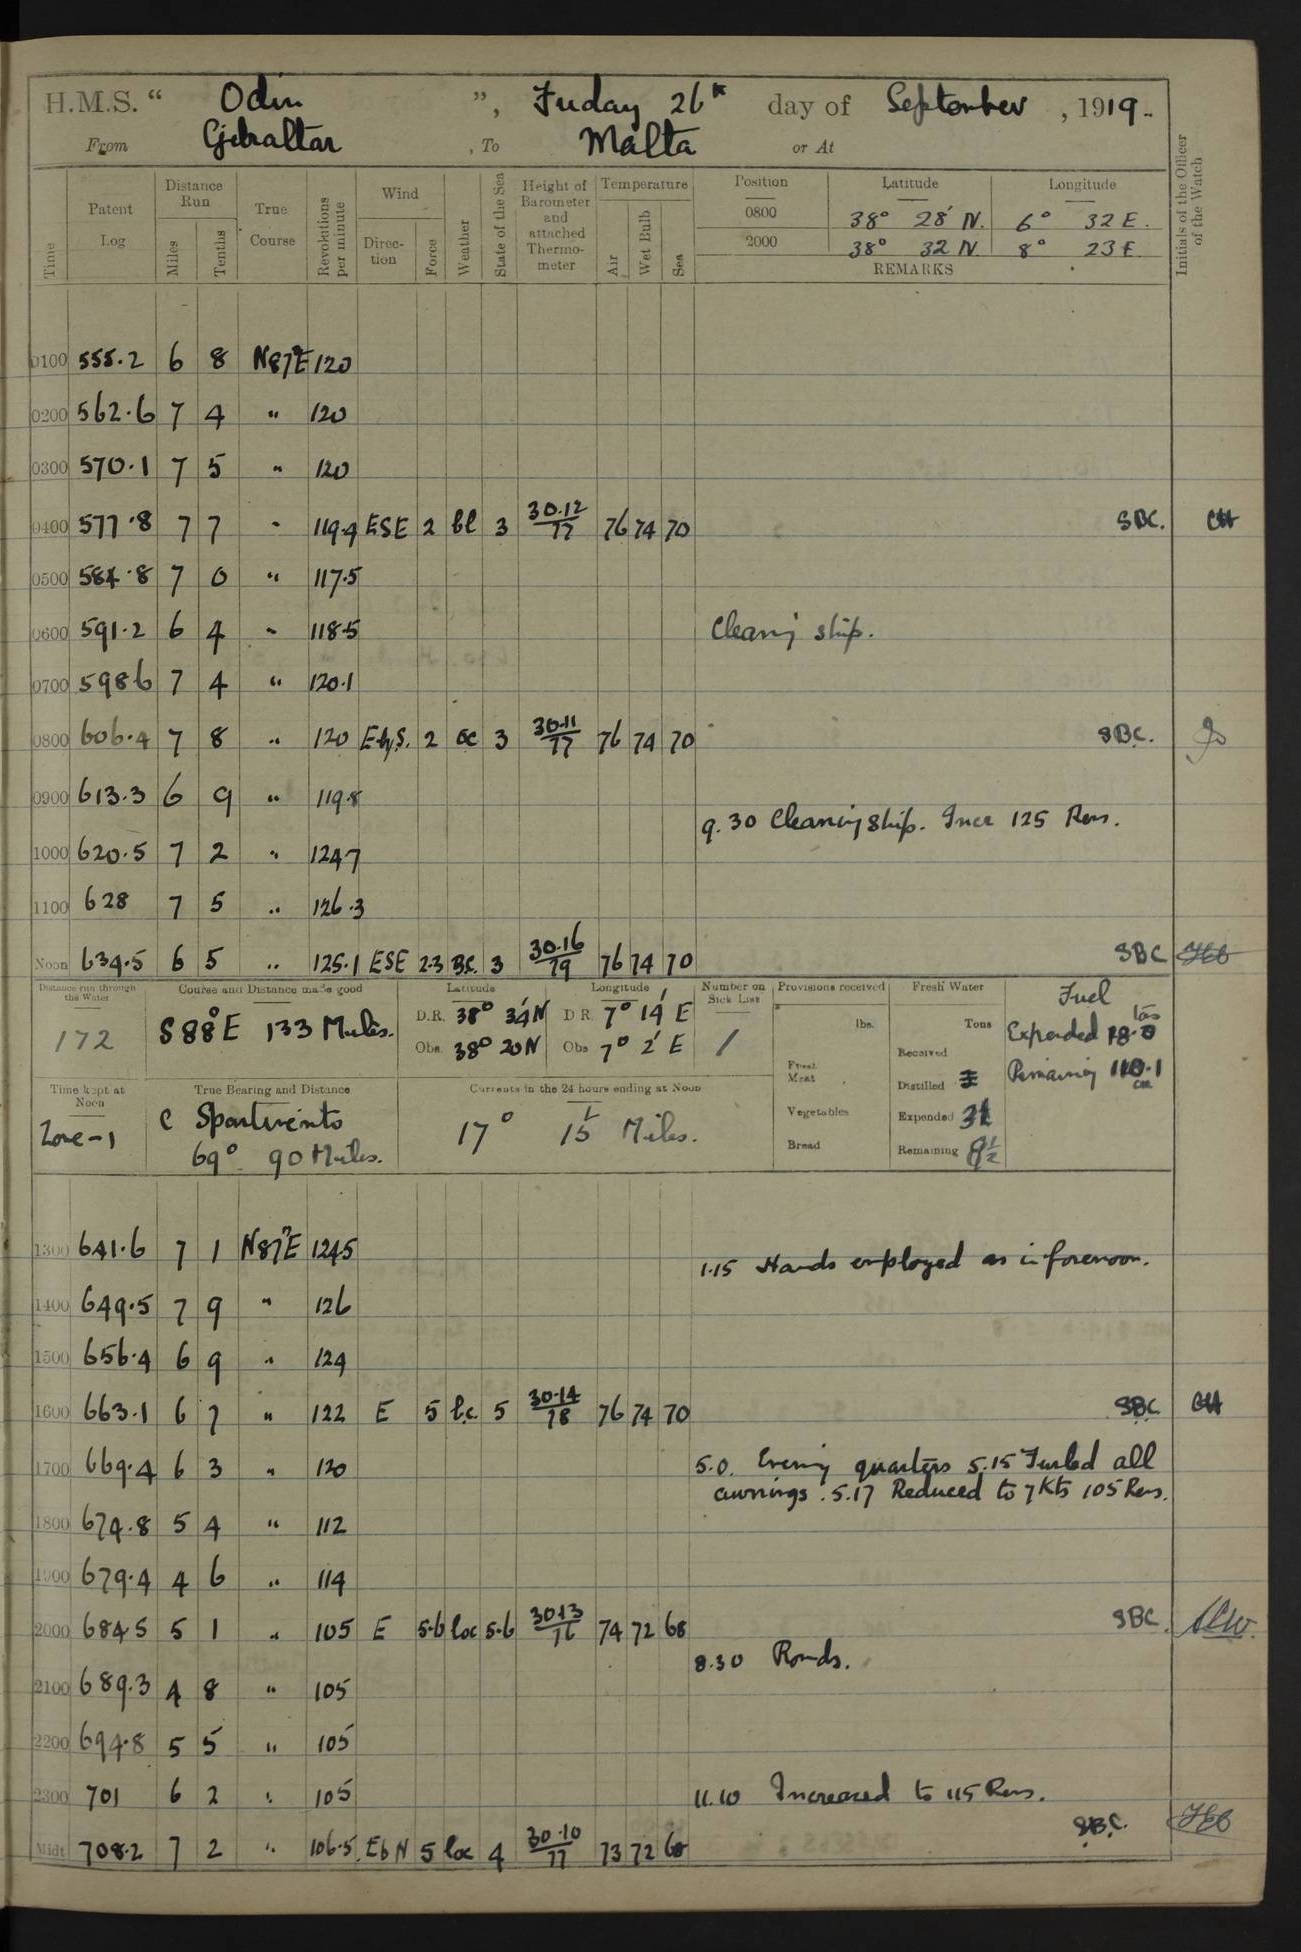 H.M.S. “ Odin ”, Friday 26th day of September, 1919.
From Gibraltar, To Malta or At
Time
Patent Log
Distance Run
Miles
Tenths
True Course
Revolutions per minute
Wind
Direction
Force
Weather
State of the Sea
Height of Barometer and attached Thermometer
Temperature
Air
Wet Bulb
Sea
Position Latitude Longitude
0800 38° 28' N. 6° 32 E.
2000 38° 32 N. 8° 23 E.
REMARKS
Initials of the Officer of the Watch
0100 555.2 6 8 N87°E 120
0200 562.6 7 4 " 120
0300 570.1 7 5 " 120
0400 577.8 7 7 " 119.4 ESE 2 bc 3 30.12/77 76 74 70 SBC.
0500 584.8 7 0 " 117.5
0600 591.2 6 4 " 118.5 Cleaning ship.
0700 598.6 7 4 " 120.1
0800 606.4 7 8 " 120 EbyS. 2 bc 3 30.11/77 76 74 70 SBC.
0900 613.3 6 9 " 119.8
9.30 Cleaning ship. Incr 125 Revs.
1000 620.5 7 2 " 124.7
1100 628 7 5 " 126.3
Noon 634.5 6 5 " 125.1 ESE 2.3 B.C. 3 30.16/79 76 74 70 SBC
Distance run through the Water
172
Course and Distance made good
S88°E 133 Miles.
Latitude
D.R. 38° 34'N
Obs. 38° 20N
Longitude
D.R. 7° 14' E
Obs 7° 2' E
Number on Sick List
1
Provisions received
lbs.
Fresh Meat
Vegetables
Bread
Fresh Water
Tons
Received
Distilled
Expended 3½
Remaining 8½
Fuel
tons
Expended 18.0
Remaining 110.1
Time kept at Noon
Zone-1
True Bearing and Distance
C Spartivento
69° 90 Miles.
Currents in the 24 hours ending at Noon
17° 15 Miles.
1300 641.6 7 1 N87°E 124.5
1.15 Hands employed as in forenoon.
1400 649.5 7 9 " 126
1500 656.4 6 9 " 124
1600 663.1 6 7 " 122 E 5 b.c. 5 30.14/78 76 74 70 SBC
1700 669.4 6 3 " 120 5.0. Evening quarters 5.15 Furled all
awnings. 5.17 Reduced to 7Kts 105 Revs.
1800 674.8 5 4 " 112
1900 679.4 4 6 " 114
2000 684.5 5 1 " 105 E 5.6 boc 5.6 30.13/76 74 72 68 SBC.
8.30 Rounds.
2100 689.3 4 8 " 105
2200 694.8 5 5 " 105
2300 701 6 2 " 105 11.10 Increased to 115 Revs.
Midt 708.2 7 2 " 106.5 EbN 5 boc 4 30.10/77 73 72 68 SBC.